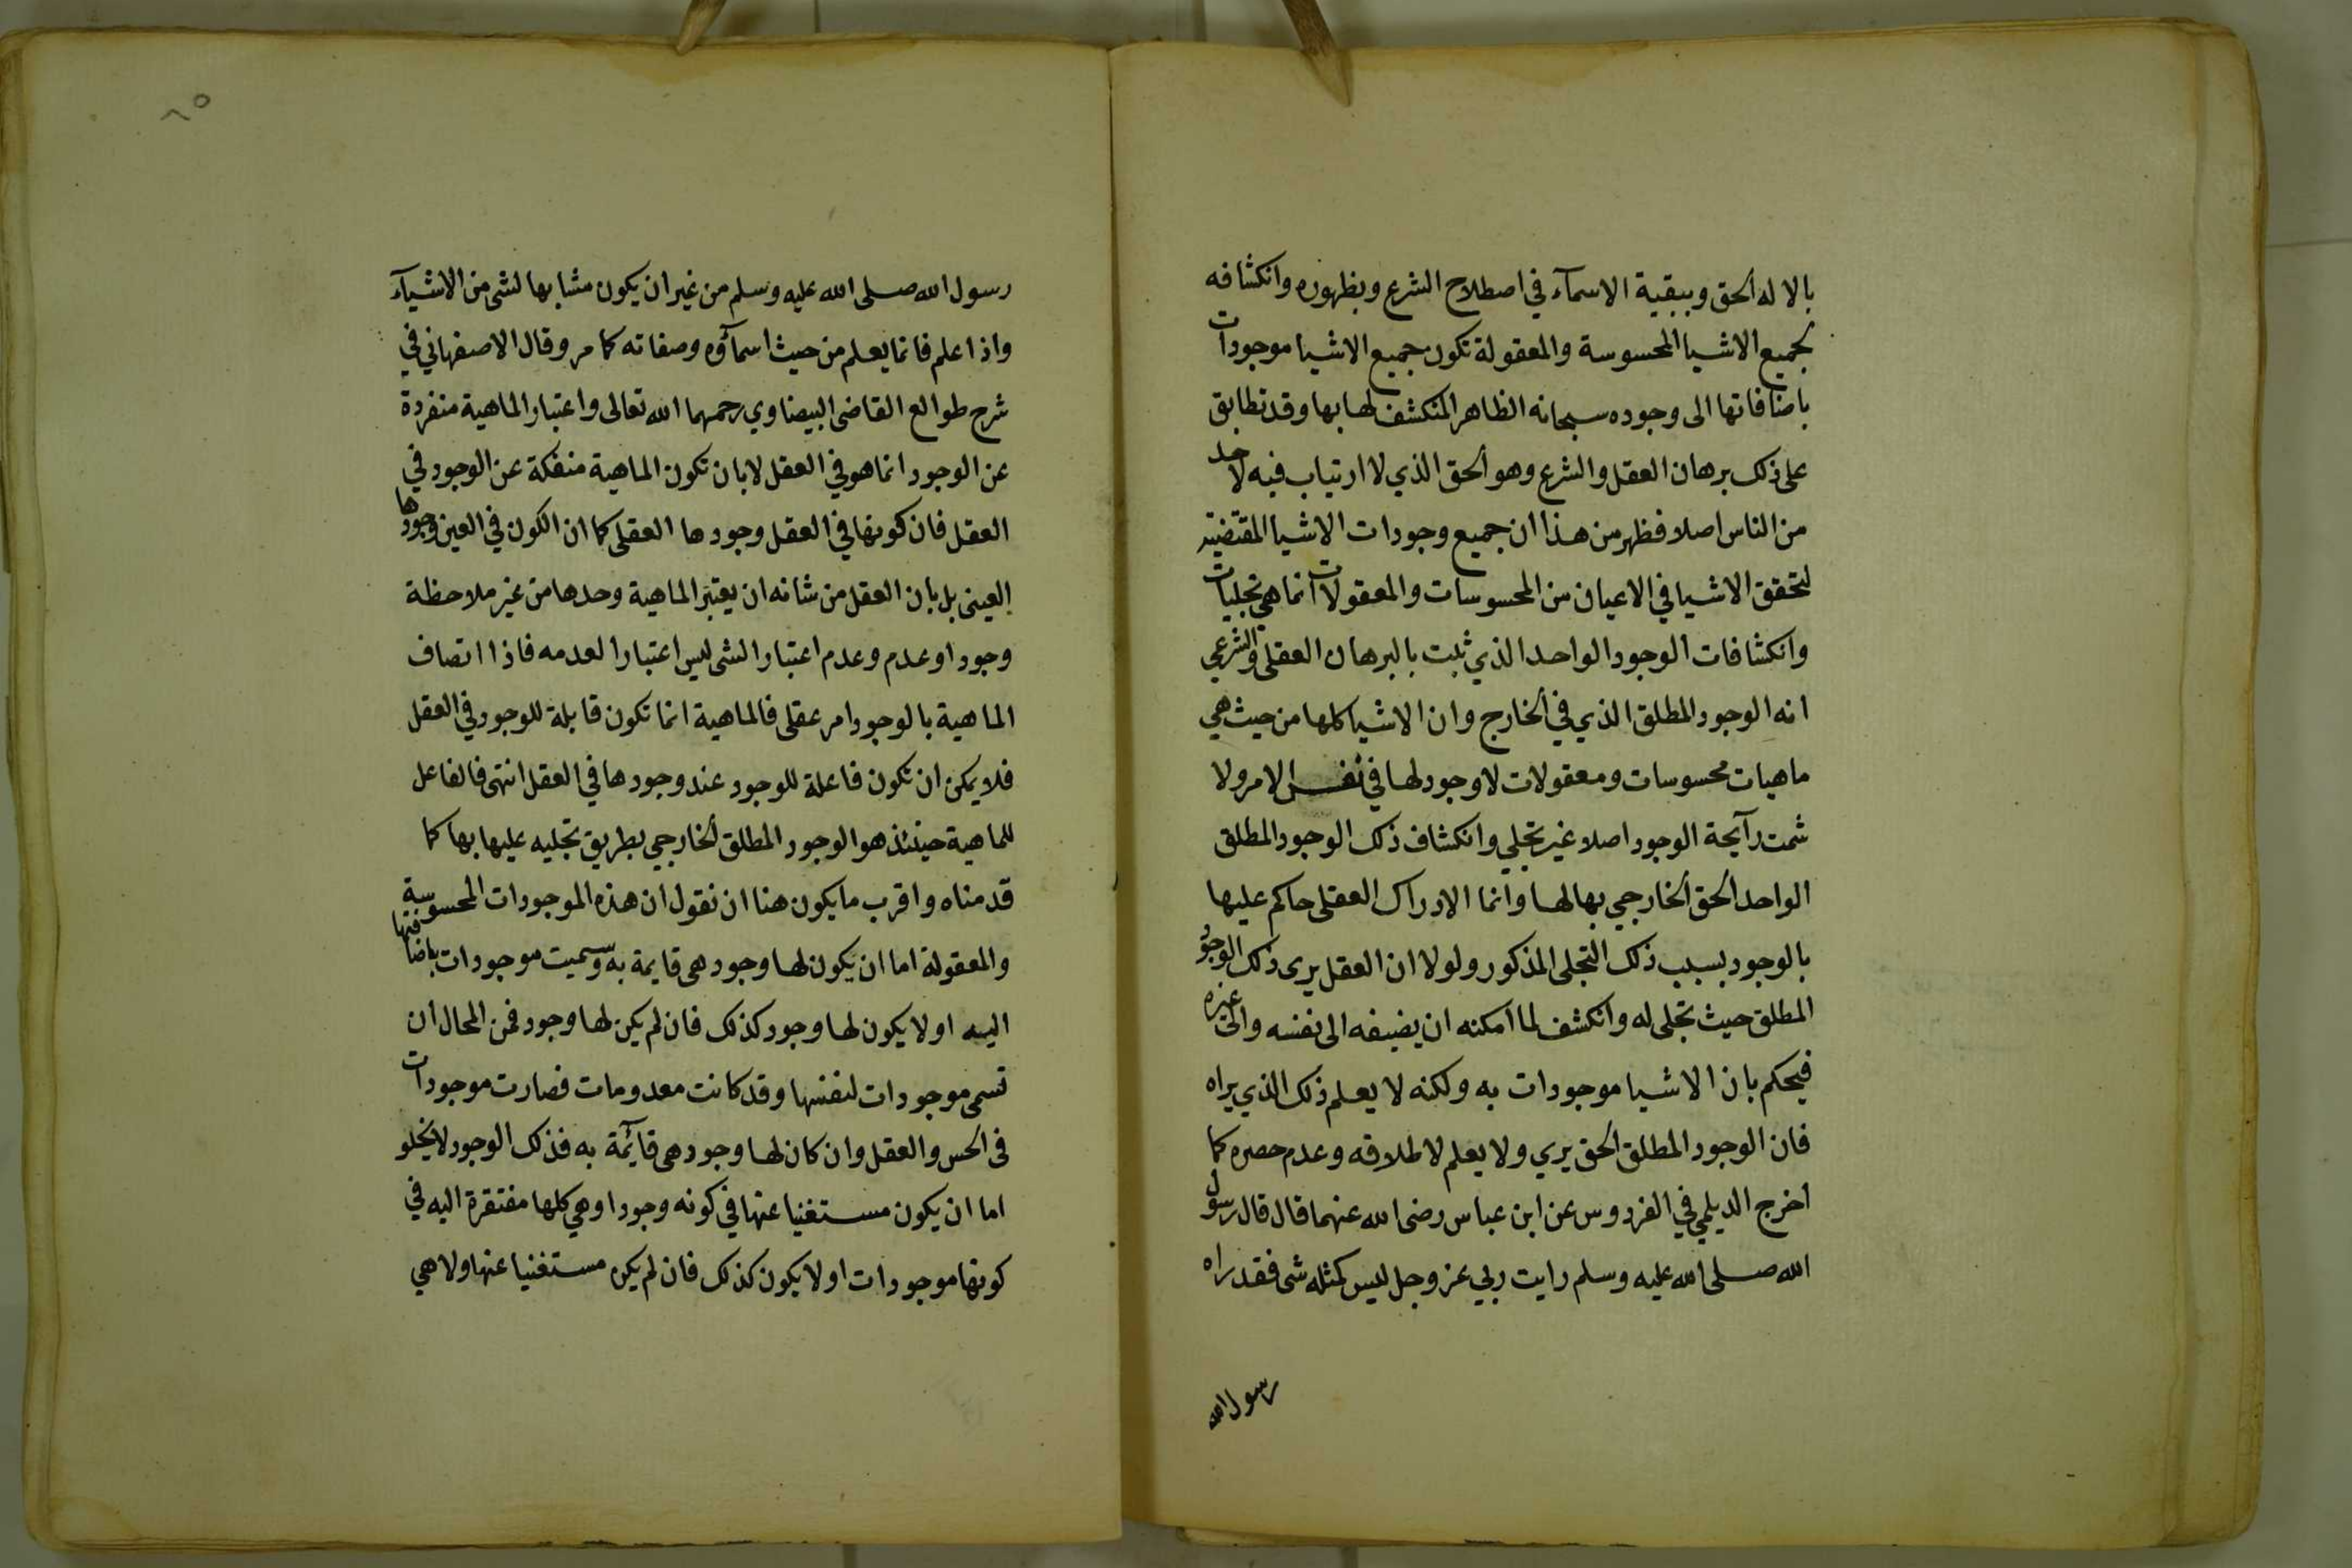 بالاله الحق وببقية الاسمآء في اصطلاح الشرع وبظهوره وانكشافه
لجميع الاشيا المحسوسة والمعقولة تكون جميع الاشيا موجودات
باضافاتها الى وجوده سبحانه الظاهر المنكشف لها بها وقد تطابق
على ذلك برهان العقل والشرع وهو الحق الذي لا ارتياب فيه لاحد
من الناس اصلا فظهر من هذا ان جميع وجودات الاشيا المقتضية
لتحقق الاشيا في الاعيان من المحسوسات والمعقولات انما هي تجليات
وانكشافات الوجود الواحد الذي ثبت بالبرهان العقلى والشرعي
انه الوجود المطلق الذي في الخارج وان الاشيا كلها من حيث هي
ماهيات محسوسات ومعقولات لا وجود لها في نفس الامر ولا
شمت رآيحة الوجود اصلا غير تجلي وانكشاف ذلك الوجود المطلق
الواحد الحق الخارجي بها لها وانما الادراك العقلى حاكم عليها
بالوجود بسبب ذلك التجلى المذكور ولولا ان العقل يرى ذلك الوجود
المطلق حيث تجلى له وانكشف لما امكنه ان يضيفه الى نفسه والى غيره
فيحكم بان الاشيا موجودات به ولكنه لا يعلم ذلك الذي يراه
فان الوجود المطلق الحق يري ولا يعلم لاطلاقه وعدم حصره كما
اخرج الديلمي في الفردوس عن ابن عباس رضى الله عنهما قال قال رسول
الله صلى الله عليه وسلم رايت ربي عز وجل ليس كمثله شى فقد راه
رسول الله
٨٥
رسول الله صلى الله عليه وسلم من غير ان يكون مشابها لشى من الاشيآء
واذا علم فانما يعلم من حيث اسمآؤه وصفاته كما مر وقال الاصفهاني في
شرح طوالع القاضى البيضاوي رحمهما الله تعالى واعتبار الماهية منفردة
عن الوجود انما هو في العقل لا بان تكون الماهية منفكة عن الوجود في
العقل فان كونها في العقل وجودها العقلى كما ان الكون في العين وجودها
العينى بل بان العقل من شانه ان يعتبر الماهية وحدها من غير ملاحظة
وجود او عدم وعدم اعتبار الشى ليس اعتبارا لعدمه فاذا اتصاف
الماهية بالوجود امر عقلى فالماهية انما تكون قابلة للوجود في العقل
فلا يمكن ان تكون فاعلة للوجود عند وجودها في العقل انتهى فالفاعل
للماهية حينئذ هو الوجود المطلق الخارجي بطريق تجليه عليها بها كما
قدمناه واقرب ما يكون هنا ان نقول ان هذه الموجودات المحسوسة
والمعقولة اما ان يكون لها وجود هى قايمة به وسميت موجودات باضافتها
اليه او لا يكون لها وجود كذلك فان لم يكن لها وجود فمن المحال ان
تسمى موجودات لنفسها وقد كانت معدومات فصارت موجودات
فى الحس والعقل وان كان لها وجود هى قآئمة به فذلك الوجود لا يخلو
اما ان يكون مستغنيا عنها في كونه وجودا وهي كلها مفتقرة اليه في
كونها موجودات او لا يكون كذلك فان لم يكن مستغنيا عنها ولا هي